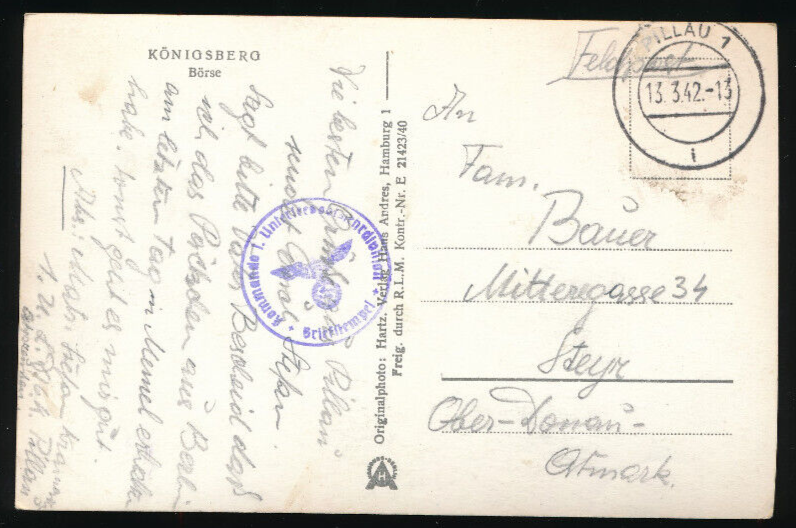 KÖNIGSBERG
Börse
Die besten Grüße aus Pillau
Euch Stefan
Sagt bitte Vater Bescheid daß
ich das Päckchen aus Berlin
am letzten Tag in Memel erhalten
habe. Sonst geht es mir gut.
Adr.: Matr. Stefan
1. U. L. Pillau
Kommando 1. Unterseebootslehrdivision
Briefstempel
Originalphoto: Hartz, Verlag Hans Andres, Hamburg 1
Freig. durch R.L.M. Kontr.-Nr. E 21423/40
H
Feldpost
PILLAU 1
13.3.42.-13
i
An
Fam.
Bauer
Mitteregasse 34
Steyr
Ober-Donau-
Ostmark.